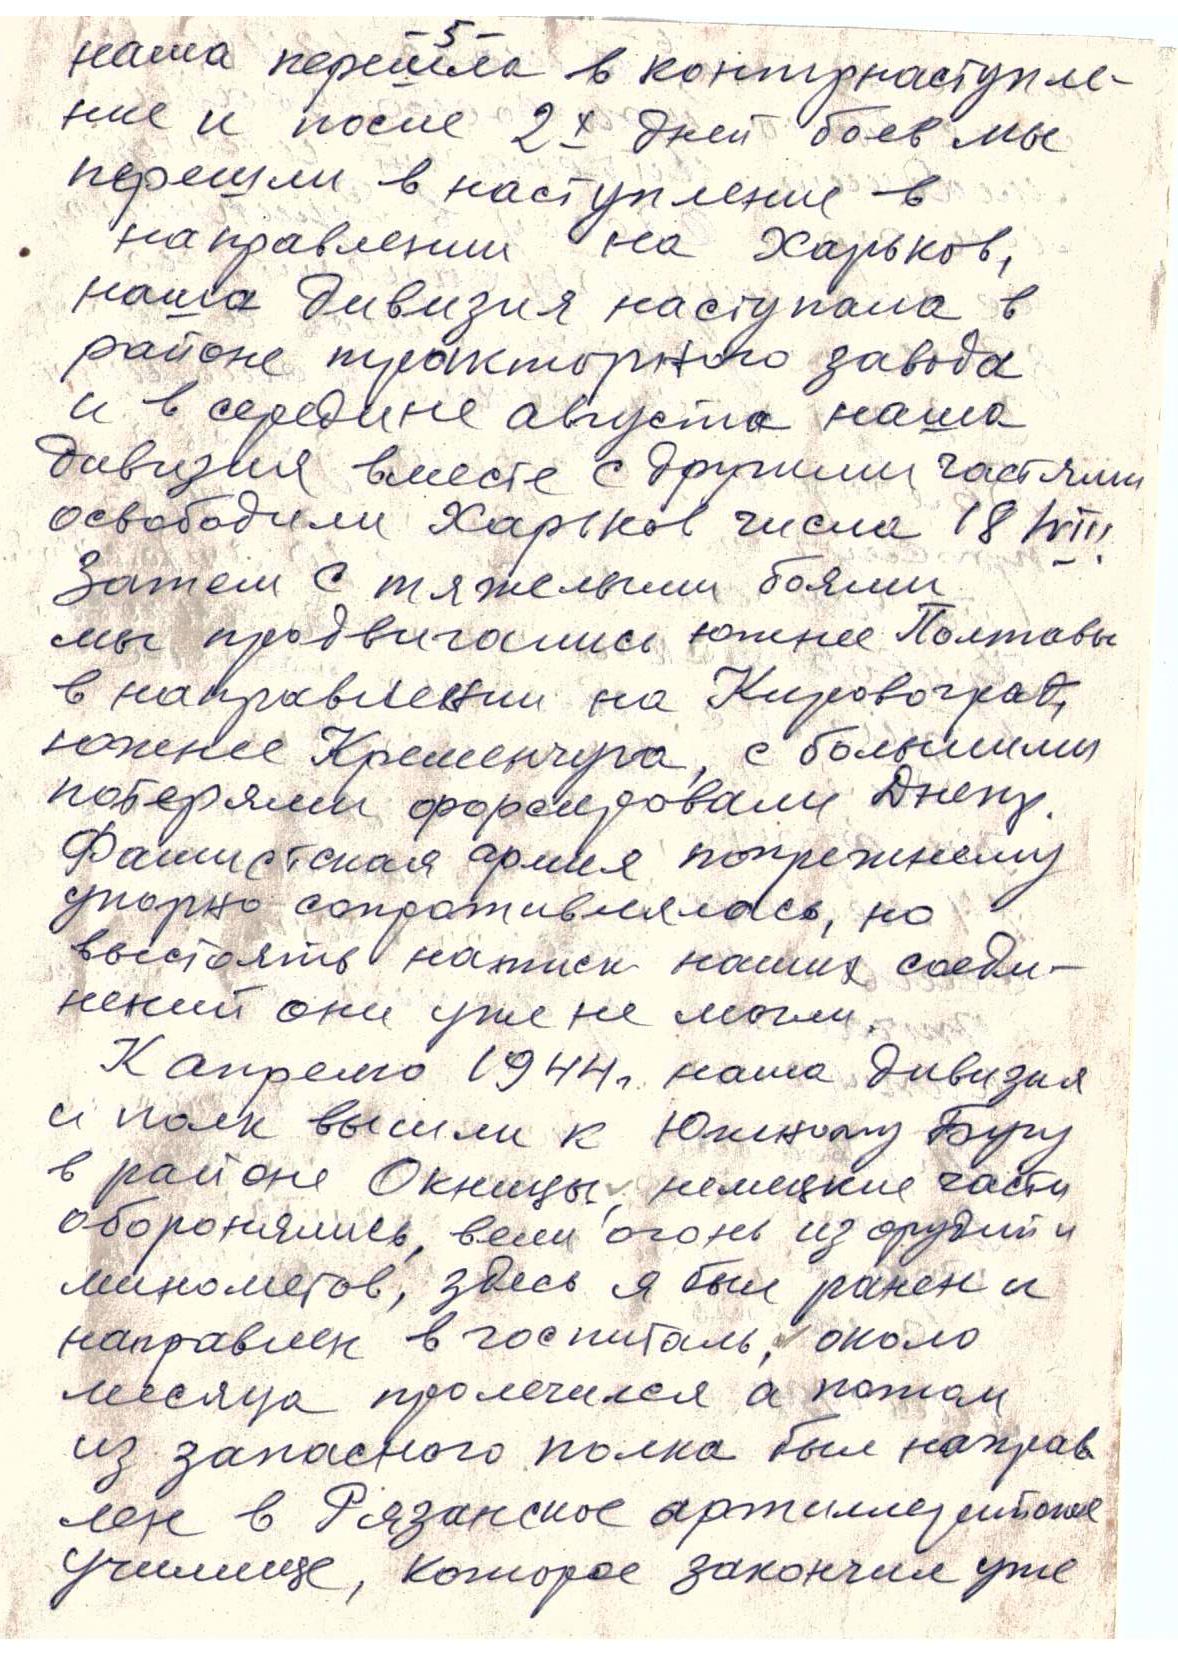 -5-
наша перешла в контрнаступле-
ние и после 2х дней боев мы
перешли в наступление в
направлении на Харьков,
наша дивизия наступала в
районе тракторного завода
и в середине августа наша
дивизия вместе с другими частями
освободили Харьков числа 18 VIII.
Затем с тяжелыми боями
мы продвигались южнее Полтавы
в направлении на Кировоград,
южнее Кременчуга, с большими
потерями форсировали Днепр.
Фашистская армия попрежнему
упорно сопротивлялась, но
выстоять натиск наших соеди-
нений они уже не могли.
К апрелю 1944г. наша дивизия
и полк вышли к Южному Бугу
в районе Окницы, немецкие части
оборонялись, вели огонь из орудий и
минометов, здесь я был ранен и
направлен в госпиталь, около
месяца пролечился а потом
из запасного полка был направ
лен в Рязанское артиллерийское
училище, которое закончил уже